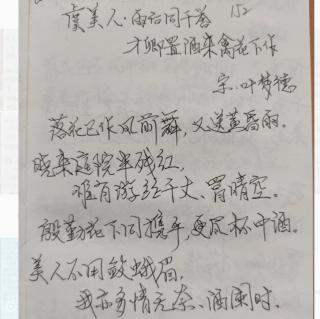 虞美人·雨后同干誉 152
才卿置酒来禽花下作
宋·叶梦得
落花已作风前舞，又送黄昏雨。
晓来庭院半残红，
唯有游丝千丈、罥晴空。
殷勤花下同携手，更尽杯中酒。
美人不用敛蛾眉，
我亦多情无奈、酒阑时。